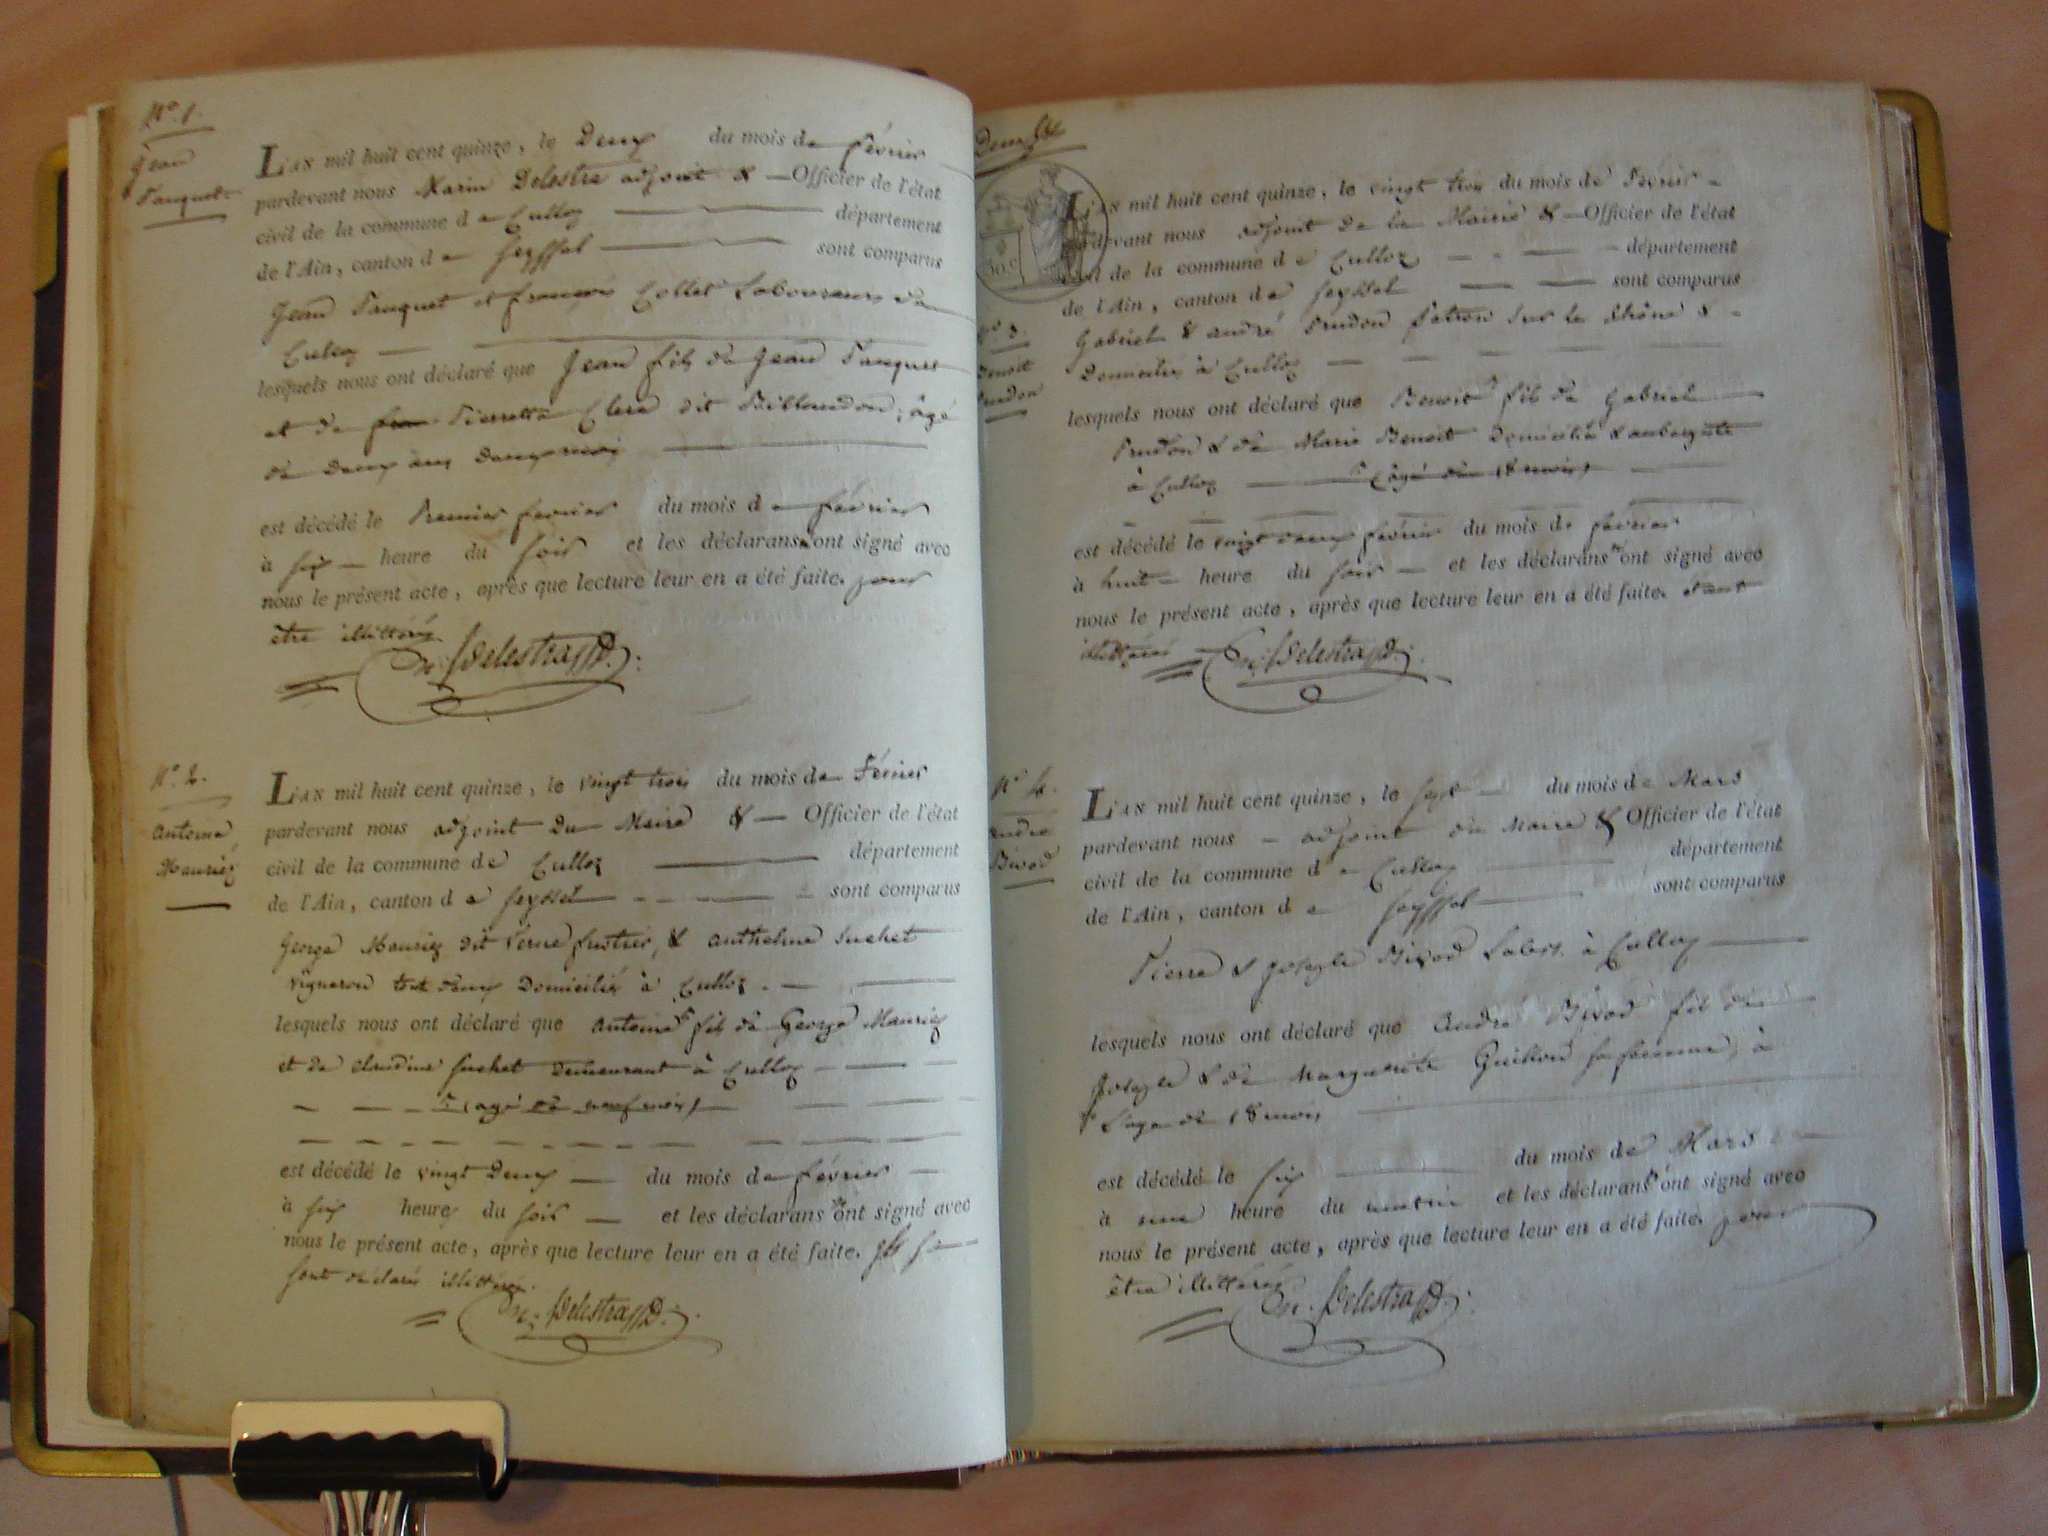 N.o 1.
Jean
Pauquet
L'AN mil huit cent quinze, le Deux du mois de février
pardevant nous Marin Delestra adjoint & Officier de l'état
civil de la commune de Culloz département
de l'Ain, canton de Seyssel sont comparus
Jean Pauquet et françois Collet Laboureurs de
Culloz
lesquels nous ont déclaré que Jean fils de Jean Pauquet
et de Pierrette Clerc dit Billoudon, âgé
de Deux ans Deux mois
est décédé le Premier février du mois de février
à six heure du soir et les déclarans ont signé avec
nous le présent acte, après que lecture leur en a été faite. pour
être illittérés
M. Delestra
N.o 2.
Antoine
Mauriez
L'AN mil huit cent quinze, le vingt trois du mois de Février
pardevant nous adjoint Du Maire & Officier de l'état
civil de la commune de Culloz département
de l'Ain, canton de Seyssel sont comparus
George Mauriez dit fustier, & anthelme Suchet
vigneron tout deux Domiciliés à Culloz
lesquels nous ont déclaré que antoine fils de George Mauriez
et de claudine Suchet Demeurant à Culloz
(agé de neuf mois)
est décédé le vingt Deux du mois de février
à six heures du soir et les déclarans n'ont signé avec
nous le présent acte, après que lecture leur en a été faite. ils se
sont déclarés illittérés.
M. Delestra
Deux
30.c
N.o 3.
Benoit
Prudon
L'AN mil huit cent quinze, le vingt trois du mois de Février
pardevant nous adjoint de la Mairie & Officier de l'état
civil de la commune de Culloz département
de l'Ain, canton de Seyssel sont comparus
Gabriel & andré Prudon patron sur le Rhône &
Domiciliés à Culloz
lesquels nous ont déclaré que Benoit fils de Gabriel
Prudon & de Marie Benoit Domicilié & aubergiste
à Culloz (âgé de 18 mois)
est décédé le vingt deux février du mois de février
à huit heure du soir et les déclarans n'ont signé avec
nous le présent acte, après que lecture leur en a été faite. étant
illittérés
M. Delestra
N.o 4.
andré
Bivod
L'AN mil huit cent quinze, le sept du mois de Mars
pardevant nous adjoint du Maire & Officier de l'état
civil de la commune de Culloz département
de l'Ain, canton de Seyssel sont comparus
Pierre & Joseph Bivod Labrs. à Culloz
lesquels nous ont déclaré que andré Bivod fils de
Joseph & de Marguerite Guillon sa femme, à
L'age de 18 mois
est décédé le six du mois de Mars
à une heure du matin et les déclarans n'ont signé avec
nous le présent acte, après que lecture leur en a été faite. pour
être illittérés
M. Delestra